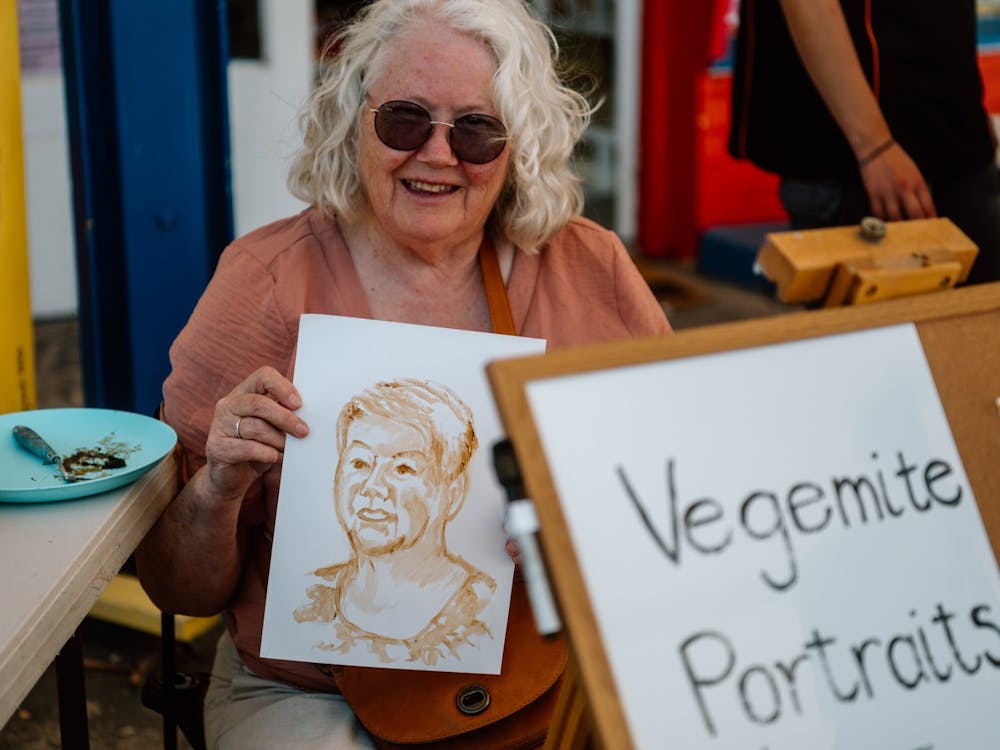 Vegemite
Portraits